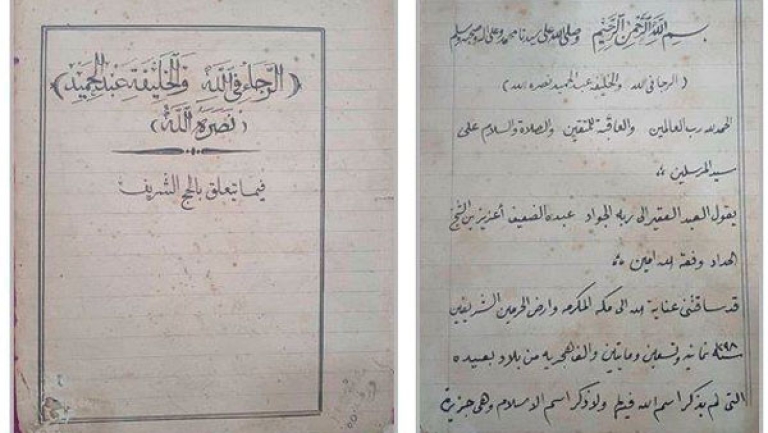 (الرجاء في الله والخليفة عبد الحميد)
(نصره الله)
فيما يتعلق بالحج الشريف
بسم الله الرحمن الرحيم وصلى الله على سيدنا محمد وعلى اله وصحبه وسلم
(الرجا في الله والخليفة عبد الحميد نصره الله)
الحمد لله رب العالمين والعاقبة للمتقين والصلاة والسلام على
سيد المرسلين
يقول العبد الفقير الى ربه الجواد عبده الضعيف أعزيز بن الشيخ
الحداد وفقه الله امين
قد ساقتنى عناية الله الى مكه المكرمه وارض الحرمين الشريفين
سنة ١٢٩٨ ثمانية وتسعين ومايتين والف هجريه من بلاد بعيده
التى لم يذكر اسم الله فيها ولا ذكر اسم الاسلام وهى جزيرة